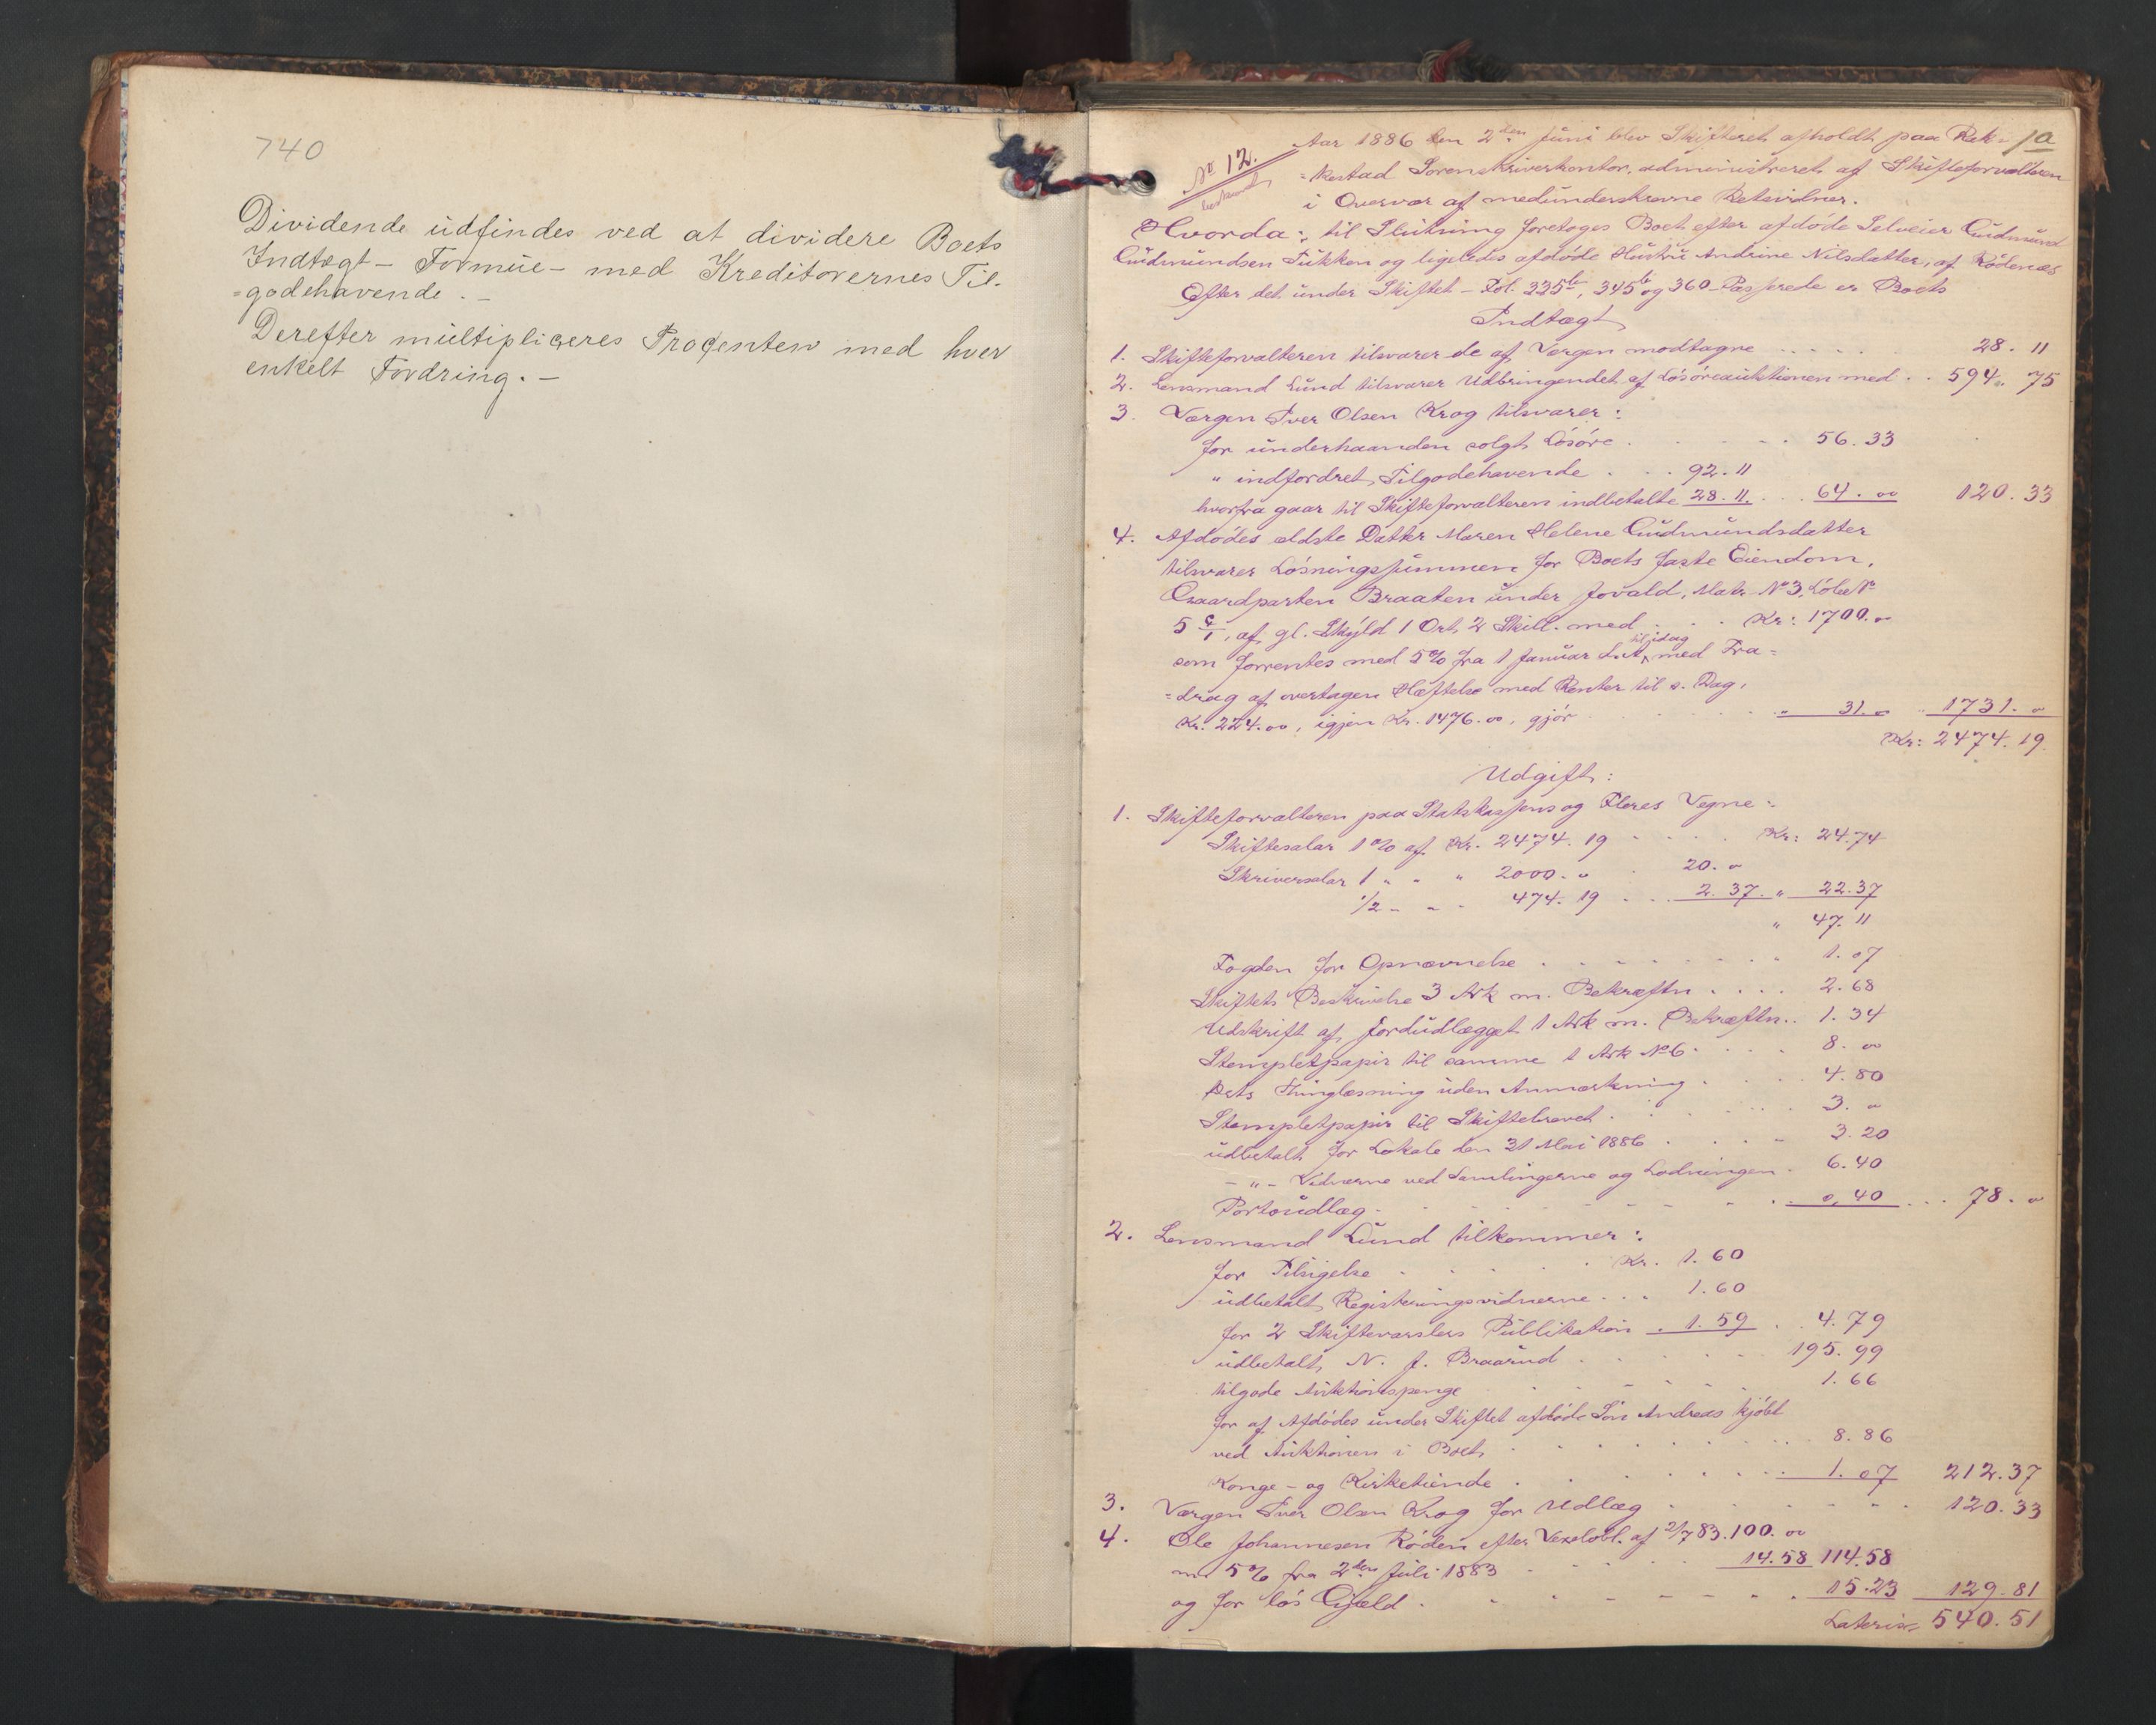 740
Dividende udfindes ved at dividere Boets
Indtægt – Formue – med Kreditorernes Til-
=godehavende. –
Derefter multipliceres Procenten med hver
enkelt Fordring. –
1a
No 12.
Aar 1886 den 2den Juni blev Skifteret afholdt paa Rak-
=kestad Sorenskriverkontor, administreret af Skifteforvalteren
i Overvær af medunderskrevne Retsvidner.
Hvorda: til Slutning foretoges Boet efter afdøde Selveier Gudmund
Gudmundsen Tukken og ligeledes afdøde Hustru Andrine Nilsdatter, af Rødenæs
Efter det under Skiftet – Fol. 335b, 345b og 360 – Passerede er Boets
Indtægt
1. Skifteforvalteren tilsvarer de af Værgen modtagne . . . . . 28. 11
2. Lensmand Lund tilsvarer Udbringendet af Løsøreauktionen med . . 594. 75
3. Værgen Iver Olsen Krog tilsvarer:
for underhaanden solgt Løsøre . . . . . 56. 33
" indfordret Tilgodehavende . . . 92. 11
hvorfra gaar til Skifteforvalteren indbetalte 28. 11. . . 64. 00 120. 33
4. Afdødes ældste Datter Maren Helene Gudmundsdatter
tilsvarer Løsningssummen for Boets faste Eiendom,
Gaardparten Braaten under Jovald, Matr. No 3, Løbe No
5 c/1, af gl. Skyld 1 Ort 2 Skill. med . . . Kr: 1700. "
til idag
som forrentes med 5% fra 1 Januar d.A., med Fra-
=drag af overtagen Hæftelse med Renter til s. Dag,
Kr. 224.00, igjen Kr. 1476.00, gjør . . . . . " 31. " " 1731. "
Kr: 2474. 19.
Udgift:
1. Skifteforvalteren paa Statskassens og Fleres Vegne:
Skiftesalær 1% af Kr. 2474. 19 . . . . Kr: 24.74
Skriversalær 1 " " " 2000. " . 20. "
1/2 – – – 474. 19 . . . 2. 37. " 22.37
" 47. 11
Fogden for Opnævnelse . . . . . . . . 1. 07
Skiftets Beskrivelse 3 Ark m. Bekræftn . . . . 2. 68
Udskrift af Jordudlægget 1 Ark m. Bekræftn. . 1. 34
Stempletpapir til samme 1 Ark No 6 . . . . 8. 00
Dets Thinglæsning uden Anmærkning . . . . 4. 80
Stempletpapir til Skiftebrevet . . . . . 3. "
udbetalt for Lokale den 31 Mai 1886 . . . . 3. 20
– " – Vidnerne ved Samlingerne og Lodningen . 6. 40
Portoudlæg . . . . . . . . . 0,40 . . . 78. "
2. Lensmand Lund tilkommer:
for Tilsigelse . . . . . Kr. 1. 60
udbetalt Registreringsvidnerne . . . 1. 60
for 2 Skiftevarslers Publikation . 1. 59 . 4. 79
udbetalt N. J. Braarud . . . . . . 195. 99
tilgode Auktionspenge . . . . . . 1. 66
for af Afdødes under Skiftet afdøde Søn Andreas kjøbt
ved Auktionen i Boet . . . . . . . . 8. 86
Konge- og Kirketiende . . . . . . . 1. 07 212.37
3. Værgen Iver Olsen Krog for Udlæg . . . . . . 120. 33
4. Ole Johannesen Røden efter Vexelobl. af 2/7 83. 100. 00
m. 5% fra 2den Juli 1883 . . . . 14. 58 114.58
og for løs Gjæld . . . . . . . . 15.23 129. 81
Lateris 540. 51